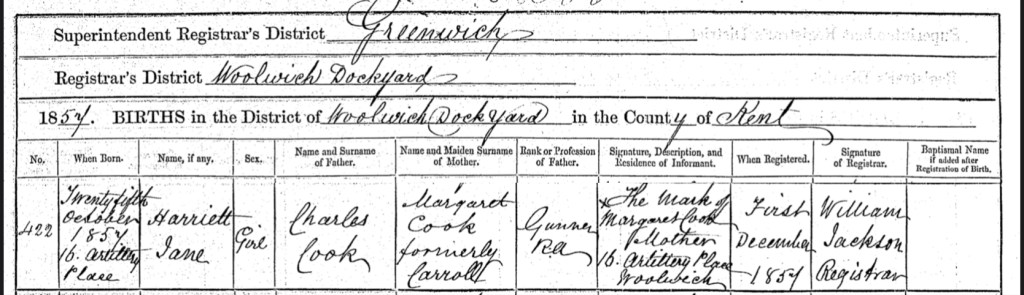 Superintendent Registrar's District Greenwich
Registrar's District Woolwich Dockyard
1857. BIRTHS in the District of Woolwich Dock Yard in the County of Kent
No. When Born. Name, if any. Sex. Name and Surname of Father. Name and Maiden Surname of Mother. Rank or Profession of Father. Signature, Description, and Residence of Informant. When Registered. Signature of Registrar. Baptismal Name if added after Registration of Birth.
422
Twenty fifth
October
1857
16. Artillery
Place
Harriett
Jane
Girl
Charles
Cook
Margaret
Cook
formerly
Carroll
Gunner
RA
X The Mark of
Margaret Cook
Mother
16. Artillery Place
Woolwich
First
December
1857
William
Jackson
Registrar